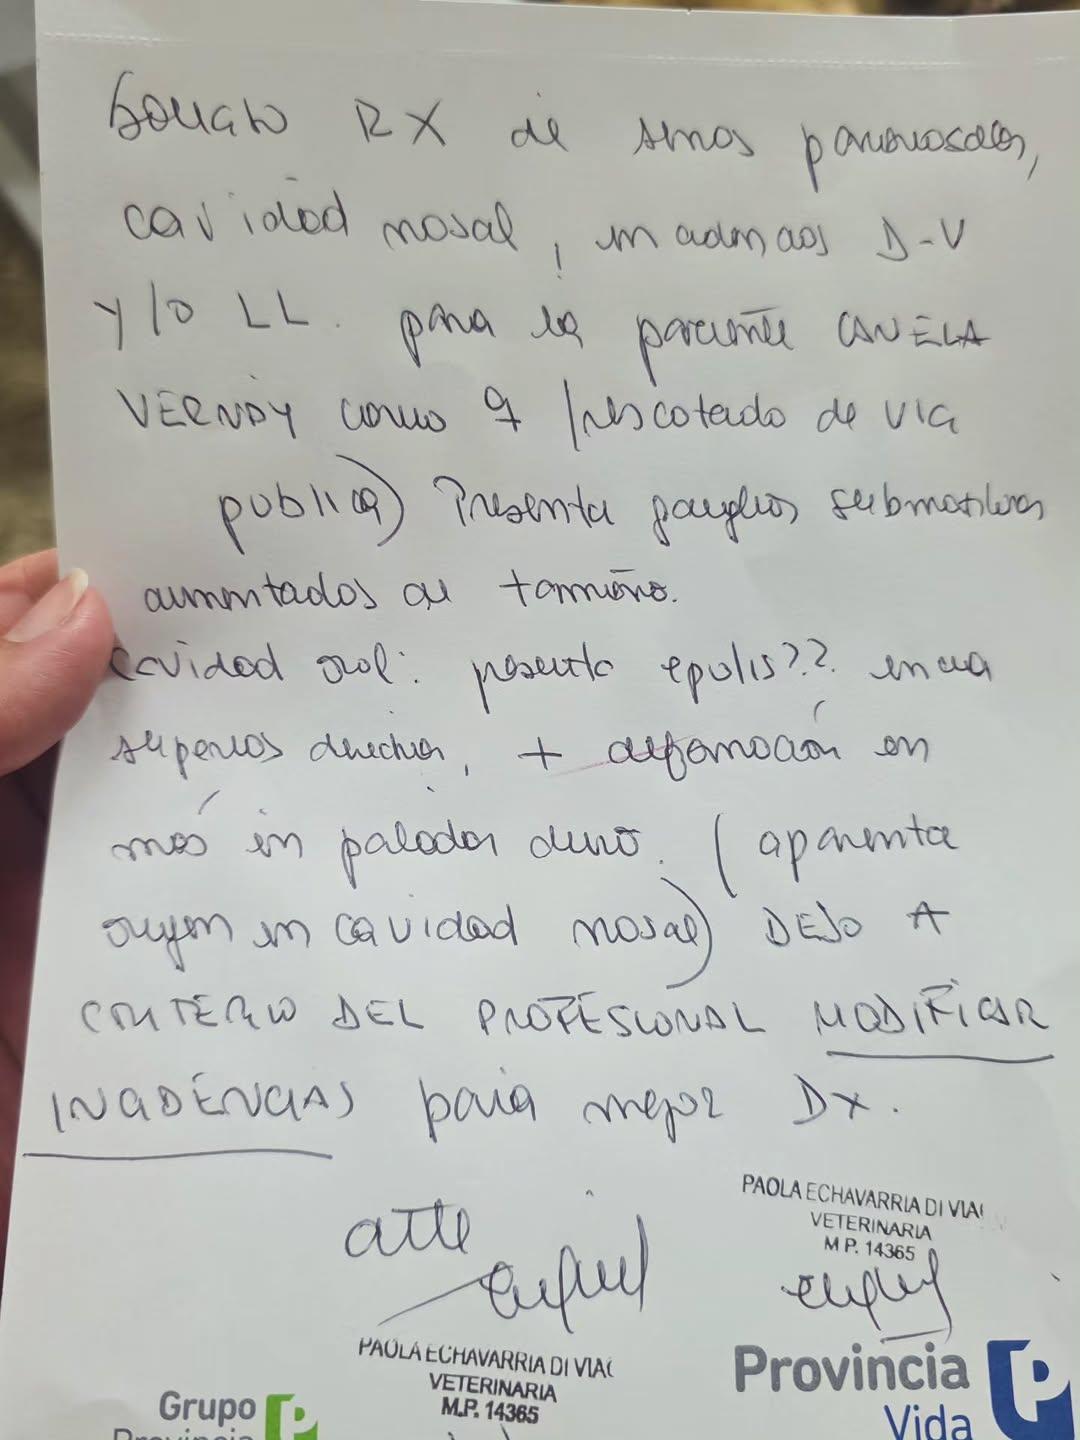 Solicito RX de senos paranasales,
cavidad nasal, incidencias D-V
y/o LL. para la paciente CANELA
VERNAY como (rescatado de via
publica) Presenta ganglios submaxilares
aumentados de tamaño.
Cavidad oral: presenta epulis?? encia
superior derecha, + deformación en
más en paladar duro. (aparenta
origen en cavidad nasal) DEJO A
CRITERIO DEL PROFESIONAL MODIFICAR
INCIDENCIAS para mejor Dx.
atte
PAOLA ECHAVARRIA DI VIA
VETERINARIA
M P. 14365
PAOLA ECHAVARRIA DI VIA
VETERINARIA
M.P. 14365
Grupo
Provincia
Provincia
Vida